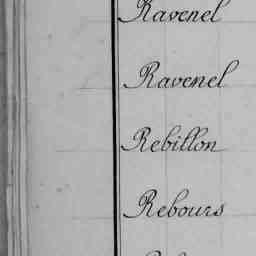 Ravenel
Ravenel
Rebillon
Rebours